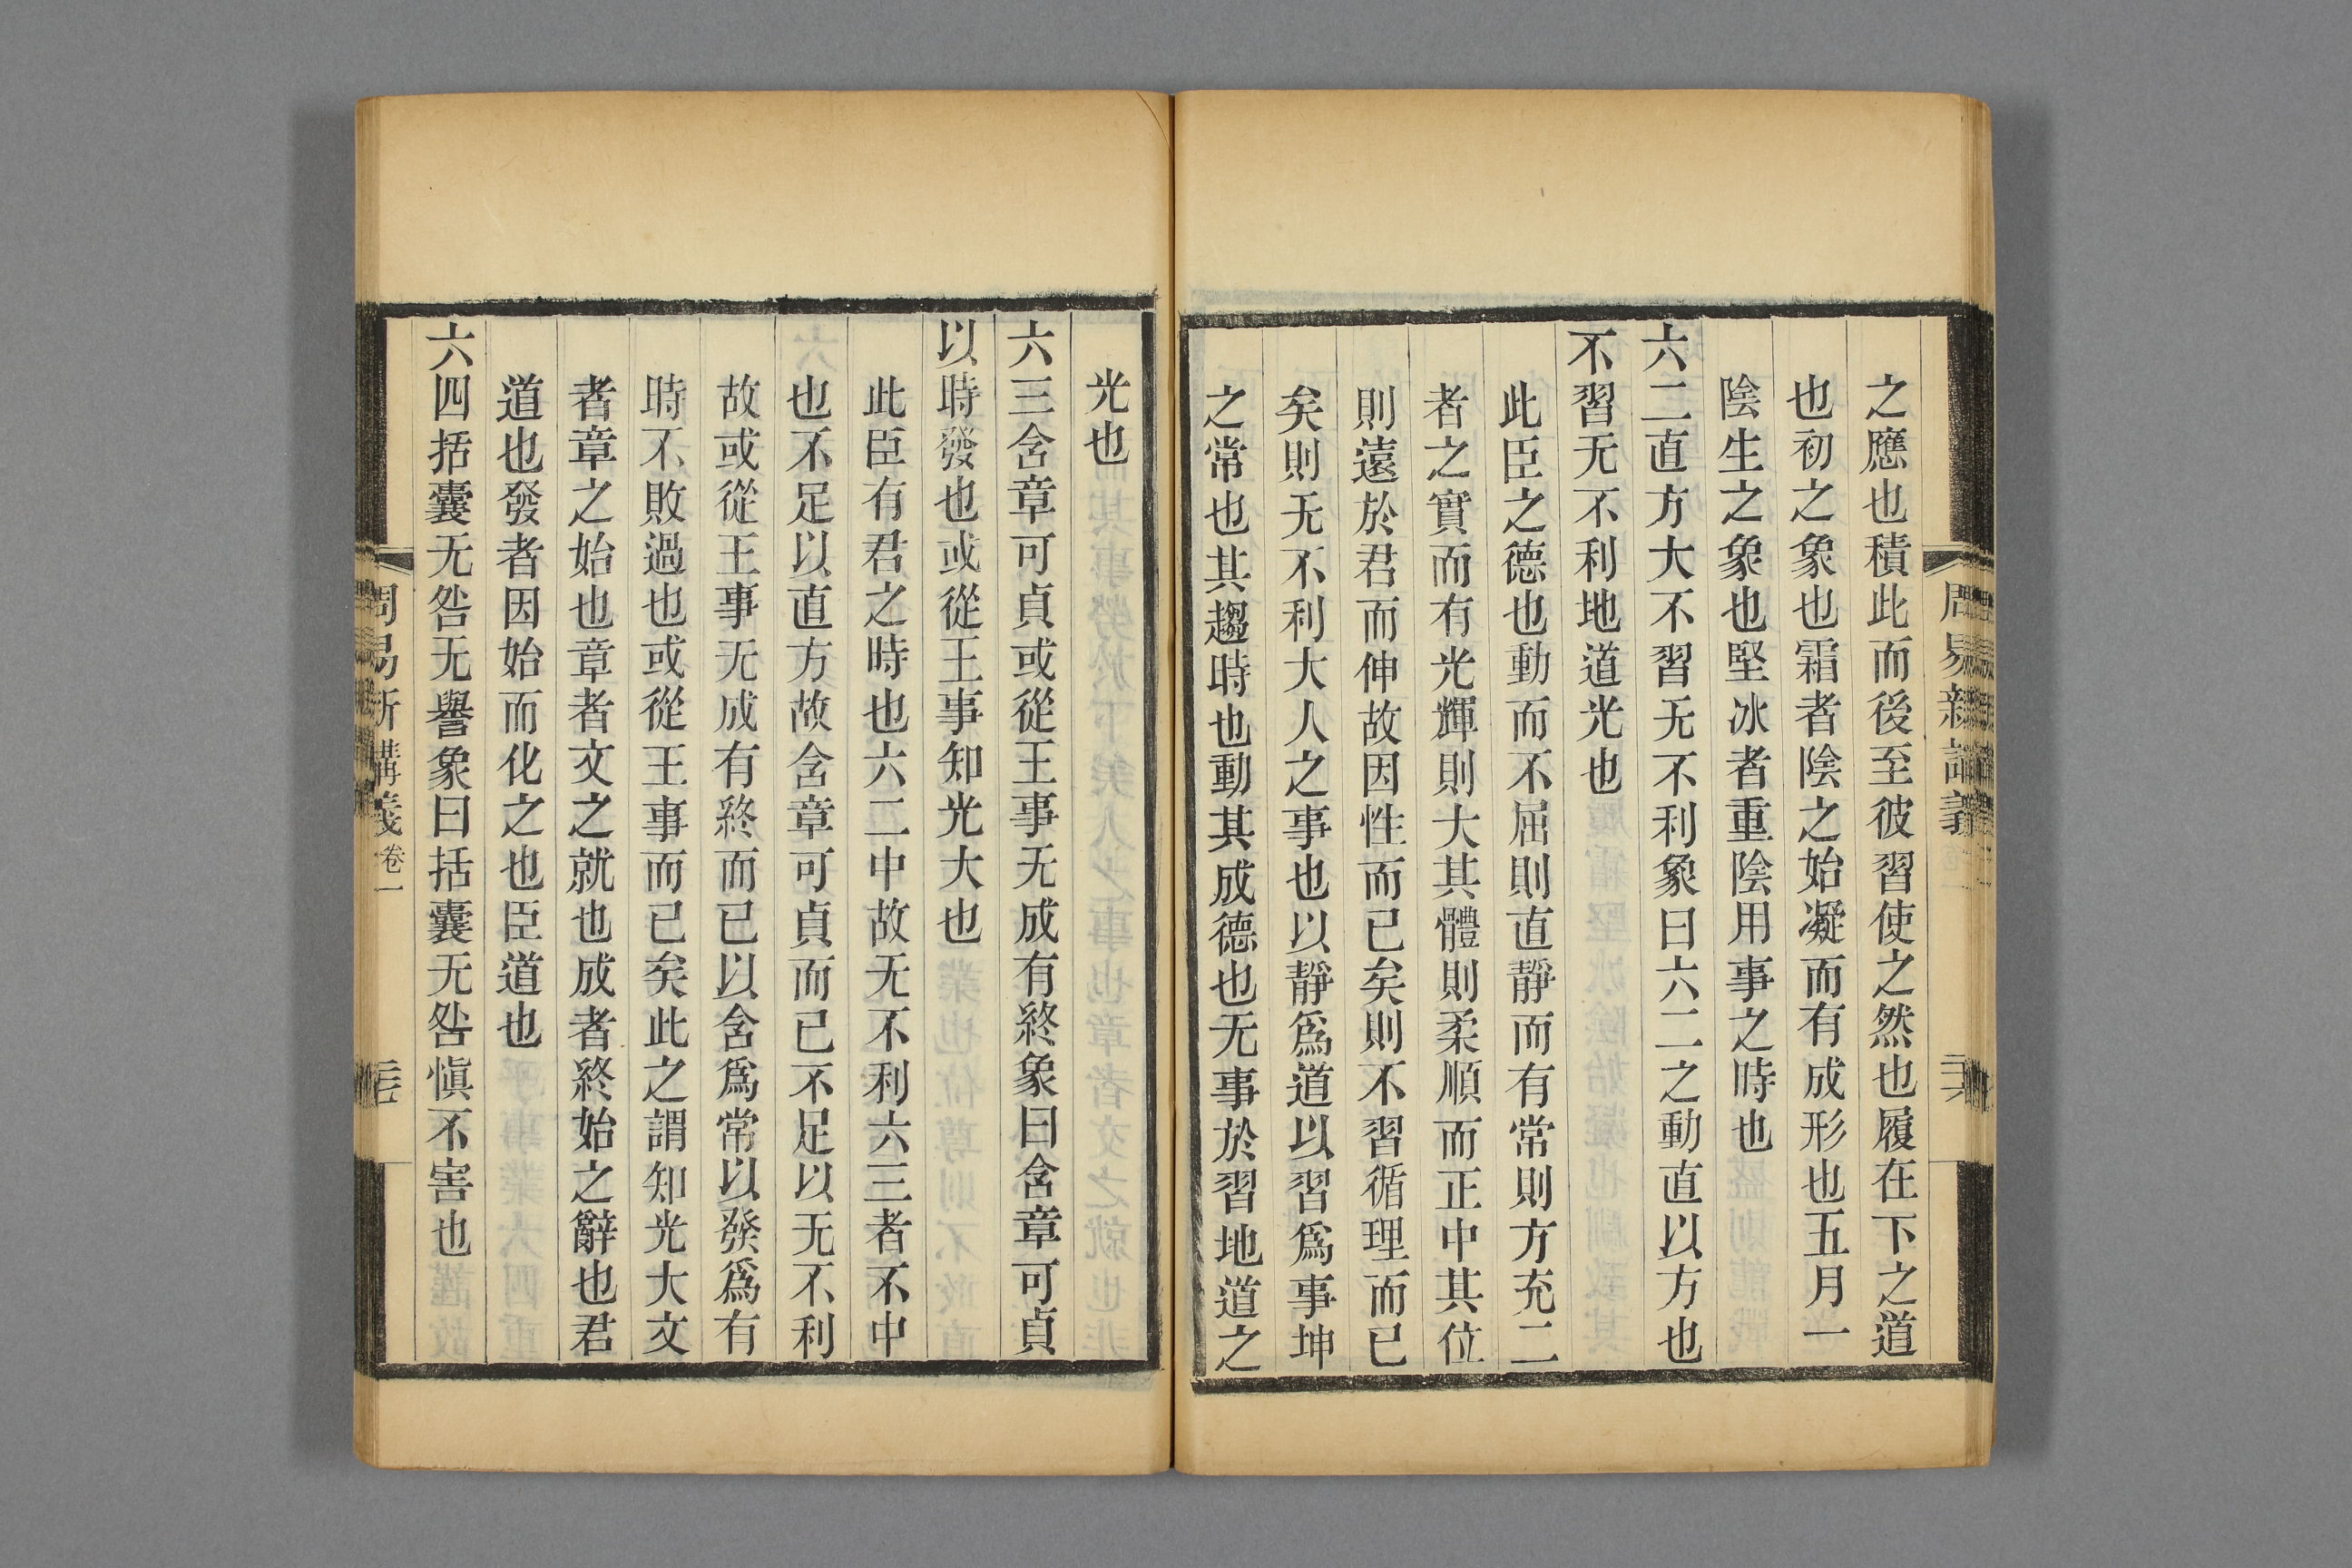 周易新講義
二六
之應也積此而後至彼習使之然也履在下之道
也初之象也霜者陰之始凝而有成形也五月一
陰生之象也堅冰者重陰用事之時也
六二直方大不習无不利象曰六二之動直以方也
不習无不利地道光也
此臣之德也動而不屈則直靜而有常則方充二
者之實而有光輝則大其體則柔順而正中其位
則遠於君而伸故因性而已矣則不習循理而已
矣則无不利大人之事也以靜爲道以習爲事坤
之常也其趨時也動其成德也无事於習地道之
光也
六三含章可貞或從王事无成有終象曰含章可貞
以時發也或從王事知光大也
此臣有君之時也六二中故无不利六三者不中
也不足以直方故含章可貞而已不足以无不利
故或從王事无成有終而已以含爲常以發爲有
時不敗過也或從王事而已矣此之謂知光大文
者章之始也章者文之就也成者終始之辭也君
道也發者因始而化之也臣道也
六四括囊无咎无譽象曰括囊无咎愼不害也
周易新講義 卷一